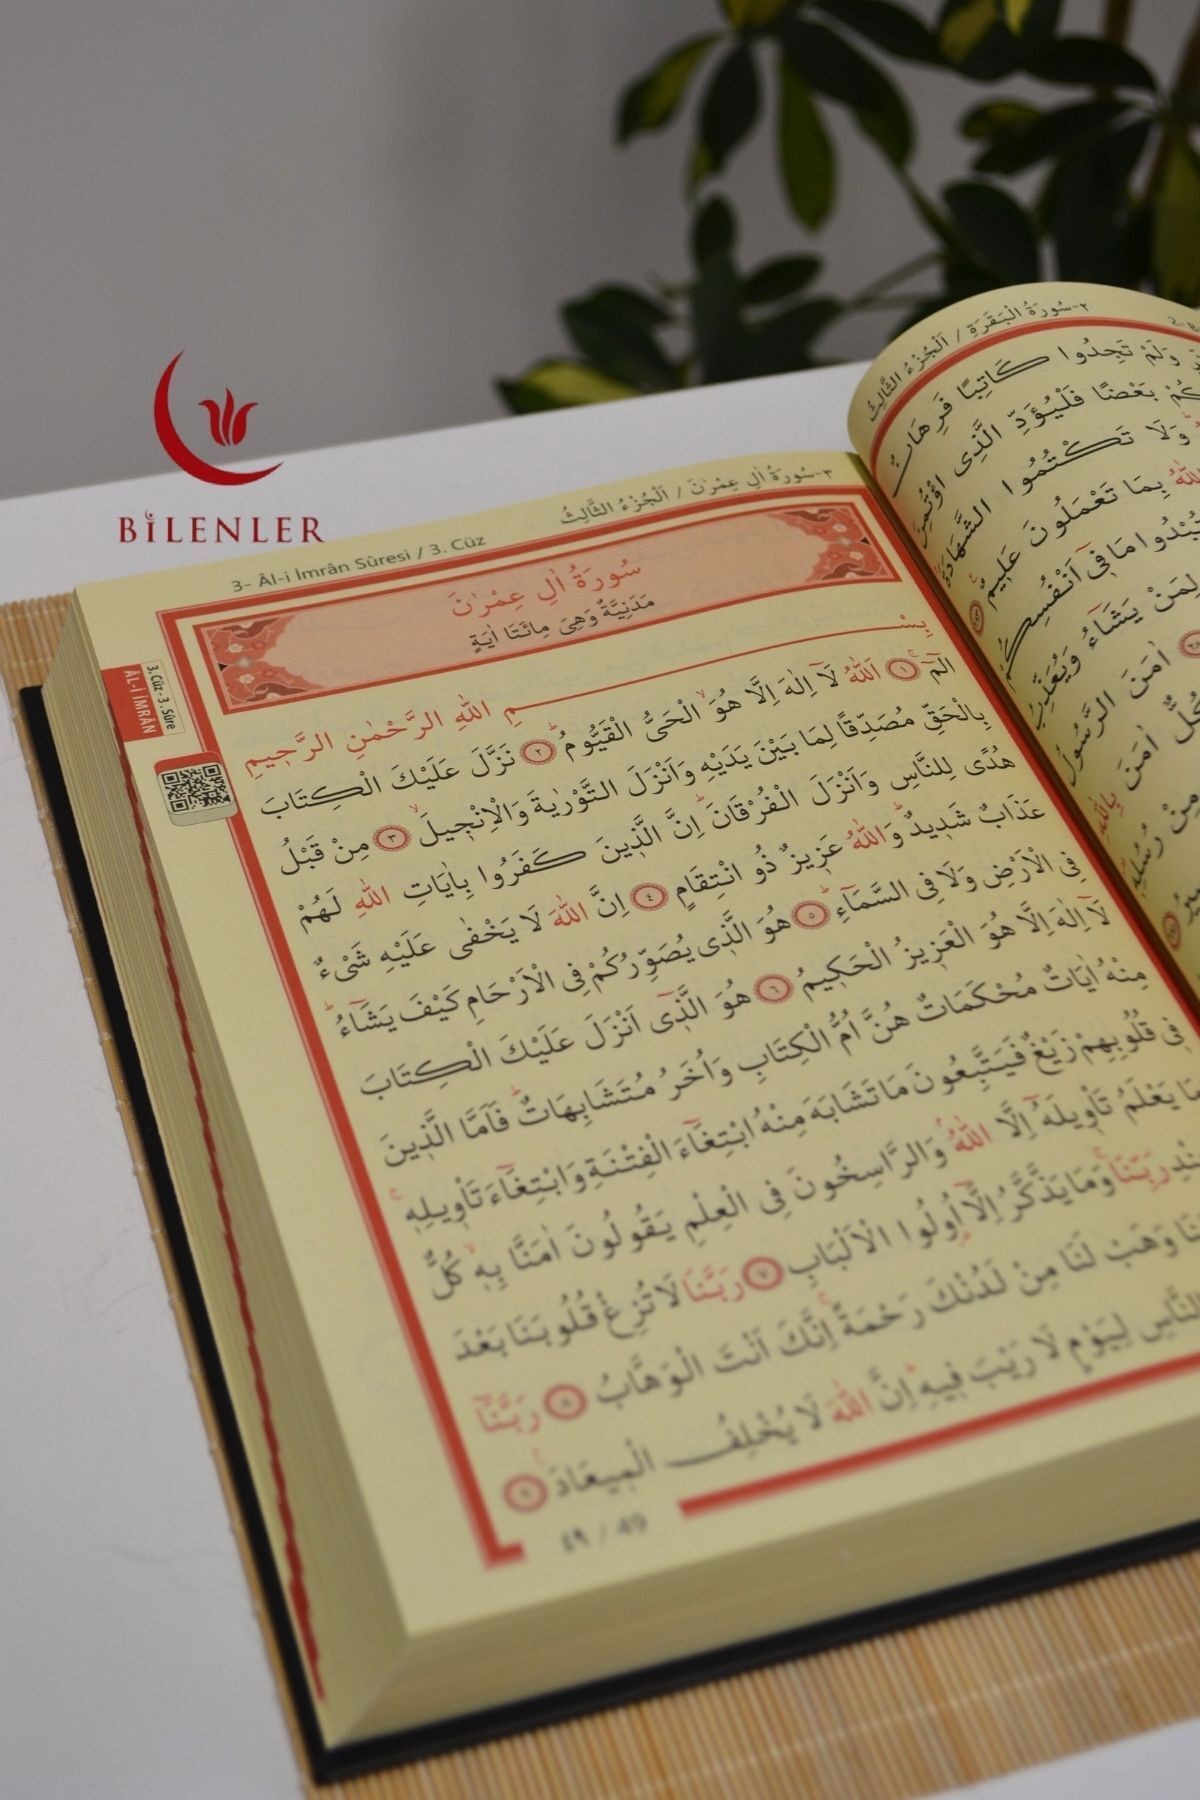 BİLENLER
3- Âl-i İmrân Sûresi / 3. Cüz
٣-سُورَةُ اٰلِ عِمْرٰنَ / اَلْجُزْءُ الثَّالِثُ
3. Cüz - 3. Sûre
ÂL-İ İMRÂN
سُورَةُ اٰلِ عِمْرٰنَ
مَدَنِيَّةٌ وَهِىَ مِائَتَا اٰيَةٍ
بِسْــــمِ اللّٰهِ الرَّحْمٰنِ الرَّح۪يمِ
الٓمٓۚ ﴿١﴾ اَللّٰهُ لَٓا اِلٰهَ اِلَّا هُوَۙ الْحَىُّ الْقَيُّومُۜ ﴿٢﴾ نَزَّلَ عَلَيْكَ الْكِتَابَ
بِالْحَقِّ مُصَدِّقًا لِمَا بَيْنَ يَدَيْهِ وَاَنْزَلَ التَّوْرٰيةَ وَالْاِنْج۪يلَۙ ﴿٣﴾ مِنْ قَبْلُ
هُدًى لِلنَّاسِ وَاَنْزَلَ الْفُرْقَانَۜ اِنَّ الَّذ۪ينَ كَفَرُوا بِاٰيَاتِ اللّٰهِ لَهُمْ
عَذَابٌ شَد۪يدٌۜ وَاللّٰهُ عَز۪يزٌ ذُو انْتِقَامٍ ﴿٤﴾ اِنَّ اللّٰهَ لَا يَخْفٰى عَلَيْهِ شَىْءٌ
فِى الْاَرْضِ وَلَا فِى السَّمَٓاءِۜ ﴿٥﴾ هُوَ الَّذ۪ى يُصَوِّرُكُمْ فِى الْاَرْحَامِ كَيْفَ يَشَٓاءُۜ
لَٓا اِلٰهَ اِلَّا هُوَ الْعَز۪يزُ الْحَك۪يمُ ﴿٦﴾ هُوَ الَّذ۪ٓى اَنْزَلَ عَلَيْكَ الْكِتَابَ
مِنْهُ اٰيَاتٌ مُحْكَمَاتٌ هُنَّ اُمُّ الْكِتَابِ وَاُخَرُ مُتَشَابِهَاتٌۜ فَاَمَّا الَّذ۪ينَ
ف۪ى قُلُوبِهِمْ زَيْغٌ فَيَتَّبِعُونَ مَا تَشَابَهَ مِنْهُ ابْتِغَٓاءَ الْفِتْنَةِ وَابْتِغَٓاءَ تَاْو۪يلِه۪ۚ
يَعْلَمُ تَاْو۪يلَهُٓ اِلَّا اللّٰهُۢ وَالرَّاسِخُونَ فِى الْعِلْمِ يَقُولُونَ اٰمَنَّا بِه۪ۙ كُلٌّ
رَبِّنَاۚ وَمَا يَذَّكَّرُ اِلَّٓا اُولُوا الْاَلْبَابِ ﴿٧﴾ رَبَّنَا لَا تُزِغْ قُلُوبَنَا بَعْدَ
وَهَبْ لَنَا مِنْ لَدُنْكَ رَحْمَةًۚ اِنَّكَ اَنْتَ الْوَهَّابُ ﴿٨﴾ رَبَّنَٓا
النَّاسِ لِيَوْمٍ لَا رَيْبَ ف۪يهِۜ اِنَّ اللّٰهَ لَا يُخْلِفُ الْم۪يعَادَ۟ ﴿٩﴾
٤٩ / 49
٢-سُورَةُ الْبَقَرَةِ / اَلْجُزْءُ الثَّالِثُ
وَلَمْ تَجِدُوا كَاتِبًا فَرِهَانٌ
بَعْضًا فَلْيُؤَدِّ الَّذِى اؤْتُمِنَ
وَلَا تَكْتُمُوا الشَّهَادَةَۜ
اللّٰهُ بِمَا تَعْمَلُونَ عَل۪يمٌ۟
تُبْدُوا مَا ف۪ٓى اَنْفُسِكُمْ
لِمَنْ يَشَٓاءُ وَيُعَذِّبُ
اٰمَنَ الرَّسُولُ
كُلٌّ اٰمَنَ بِاللّٰهِ
مِنْ رُسُلِه۪۠